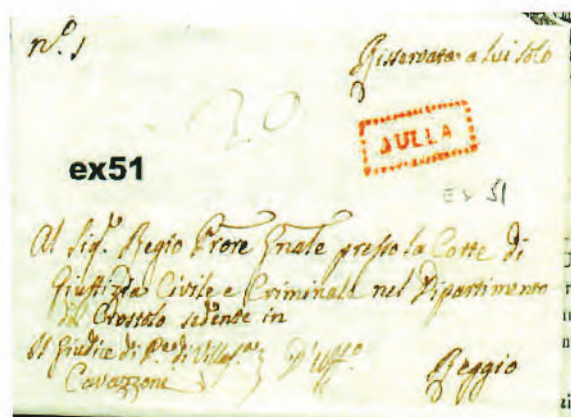 n.º 1
Risservata a lui solo
20
SULLA
ex51
Ex 51
Al Sig.r Regio Prore Gnale presso la Corte di
Giustizia Civile e Criminale nel Dipartimento
del Crostolo sedente in
Il Giudice di Pace di
Cavazzoni
D'Uff.o
Reggio